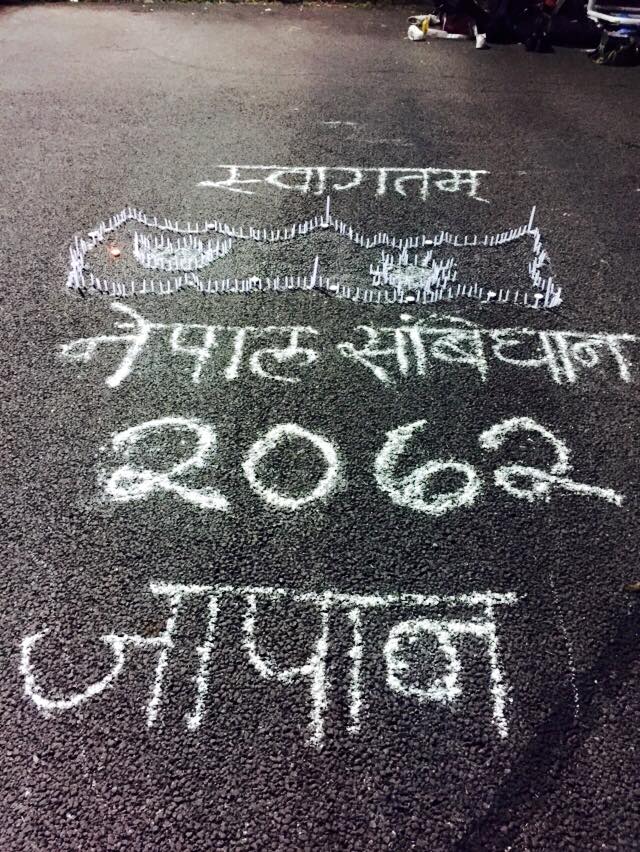 स्वागतम्
नेपाल संबिधान
२०७२
जापान